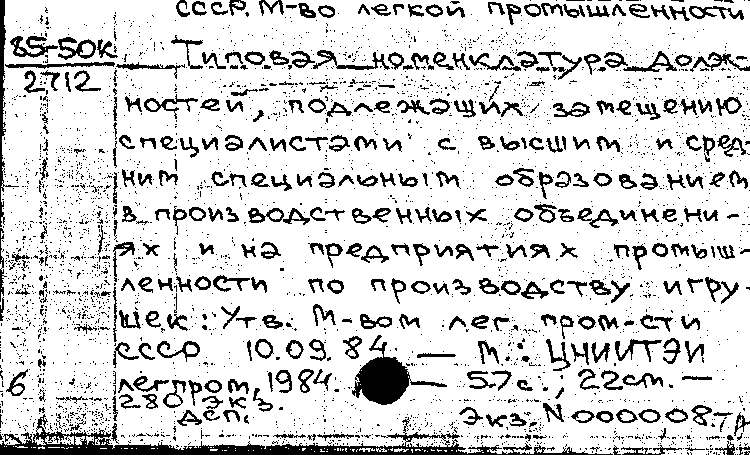 СССР. М-во легкой промышленности
85-50К
2712
Типовая номенклатура долж-
ностей, подлежащих замещению
специалистами с высшим и сред-
ним специальным образованием
в производственных объединени-
ях и на предприятиях промыш-
ленности по производству игру-
шек: Утв. М-вом лег. пром-сти
СССР 10.09.84. — М.: ЦНИИТЭИ
6
легпром, 1984. — 57с.; 22см. —
280 экз.
Деп.
Экз. N 000008.